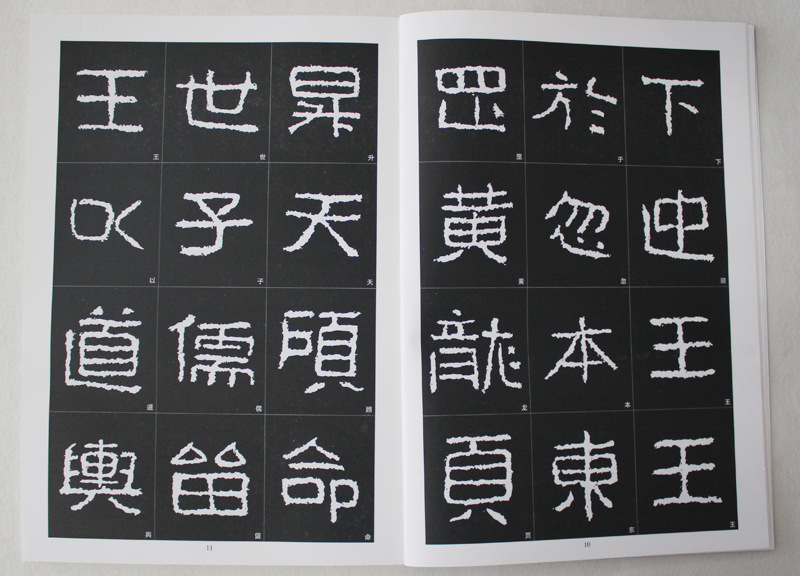 下迎王王
於忽本東
罡黃龍頁
昇天頋命
世子儒留
王以道輿
下
迎
王
王
于
忽
本
东
罡
黄
龙
页
升
天
顾
命
世
子
儒
留
王
以
道
與
10
11